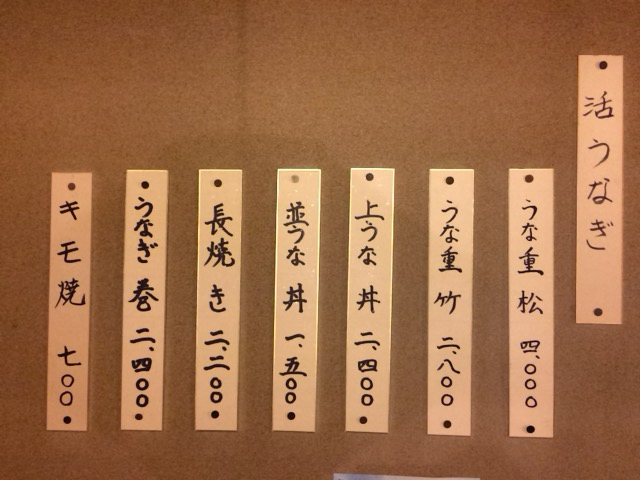 活うなぎ
うな重松 四、〇〇〇
うな重竹 二、八〇〇
上うな丼 二、四〇〇
並うな丼 一、五〇〇
長焼き 二、二〇〇
うなぎ巻 二、四〇〇
キモ焼 七〇〇